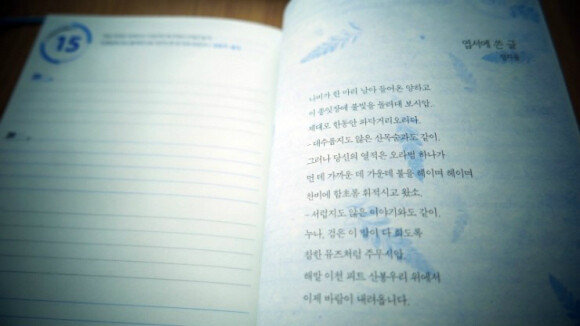 15
엽서에 쓴 글
나비가 한 마리 날아 들어온 양하고
이 종잇장에 불빛을 돌려대 보시압.
제대로 한동안 파닥거리오리다.
- 대수롭지도 않은 산목숨과도 같이.
그러나 당신의 열적은 오라범 하나가
먼 데 가까운 데 가운데 불을 헤이며 헤이며
찬비에 함초롬 휘적시고 왔소.
- 서럽지도 않은 이야기와도 같이.
누나, 검은 이 밤이 다 희도록
참한 뮤즈처럼 주무시압.
해발 이천 피트 산봉우리 위에서
이제 바람이 내려옵니다.